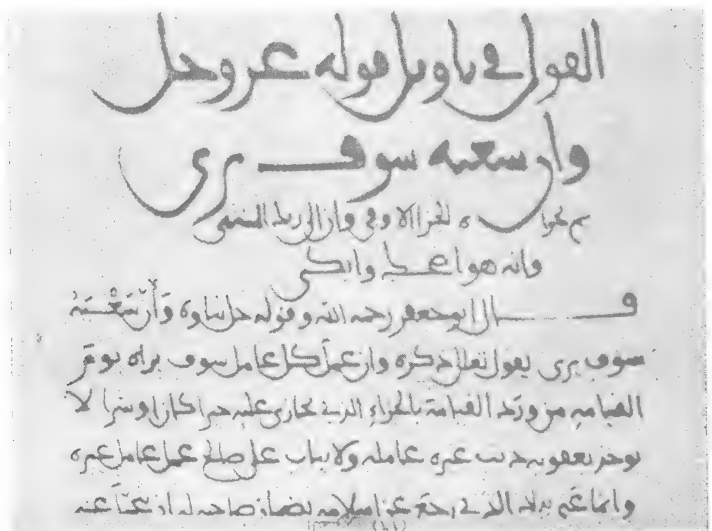 القول في تاويل قوله عز وجل
وان سعيه سوف يرى
ثم يجزاه الجزا الاوفى وان الى ربك المنتهى
وانه هو اضحك وابكى
قال ابو جعفر رحمه الله وقوله جل ثناوه وَأَنَّ سَعْيَهُ
سوف يرى يقول تعالى ذكره وان عمل كل عامل سوف يراه يوم
القيامه من ورد القيامة بالجزاء الذي يجازى عليه خيرا كان او شرا لا
يوخذ بعقوبه ذنب غير عامله ولا يثاب على صالح عمل عامل غيره
وانما عني بذلك الذي رجع عن اسلامه بضمان صاحبه له ان يتحمل عنه